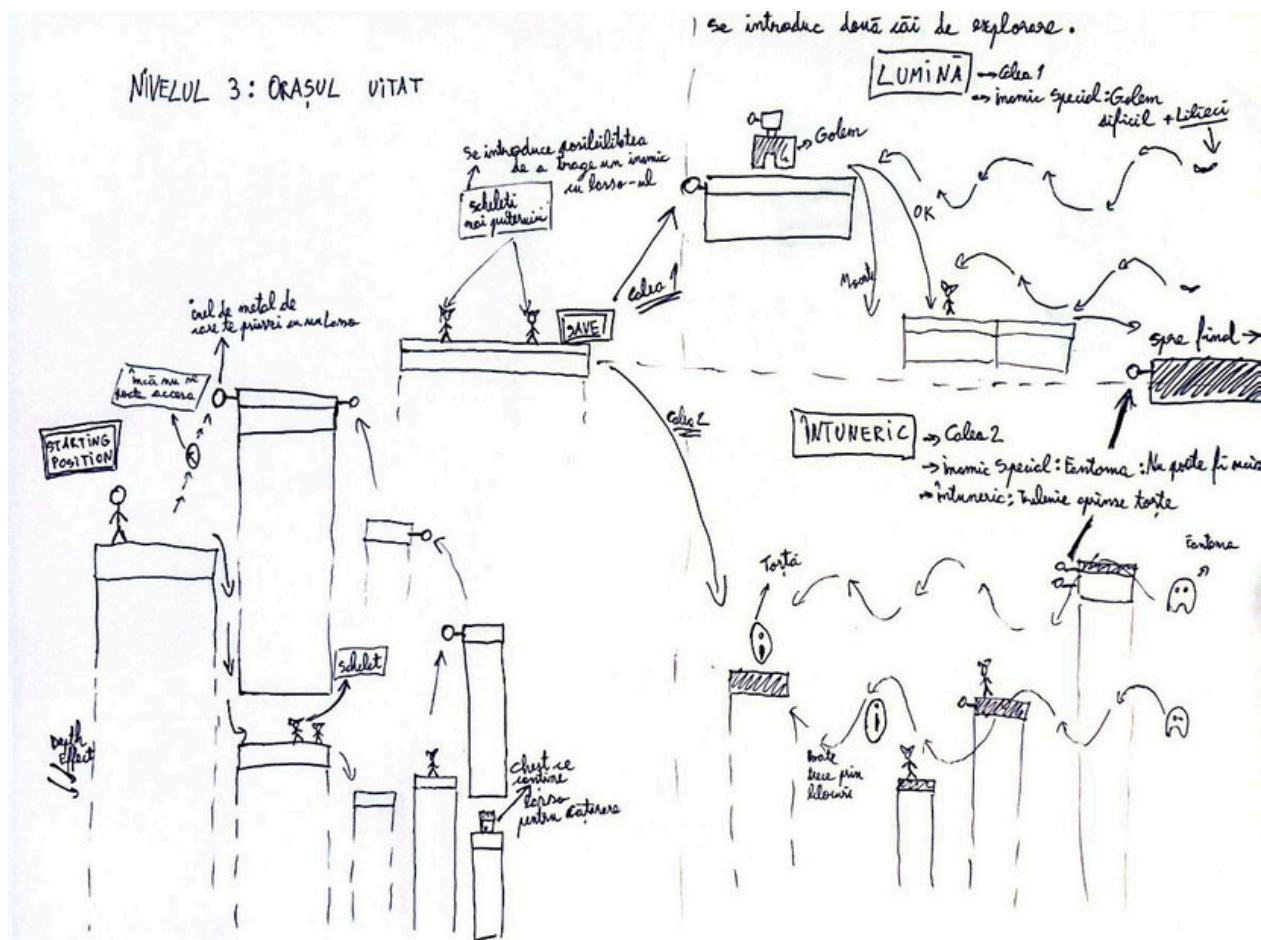 NIVELUL 3: ORAȘUL UITAT
se introduc două căi de explorare.
LUMINĂ → Calea 1
→ inamic special: Golem
dificil + Lilieci
Golem
se introduce posibilitatea
de a trage un inamic
cu lasso-ul
scheleți
mai puternici
SAVE
Calea 1
OK
Moarte
spre final →
inel de metal de
care te prinzi cu un lasso
încă nu se
poate accesa
STARTING
POSITION
Calea 2
ÎNTUNERIC → Calea 2
→ inamic special: Fantoma: Nu poate fi ucisă
→ întuneric; Trebuie aprinse torțe
Torță
Fantoma
schelet
Depth
Effect
Chest ce
conține
lasso
pentru cățărare
Poate
trece prin
blocuri